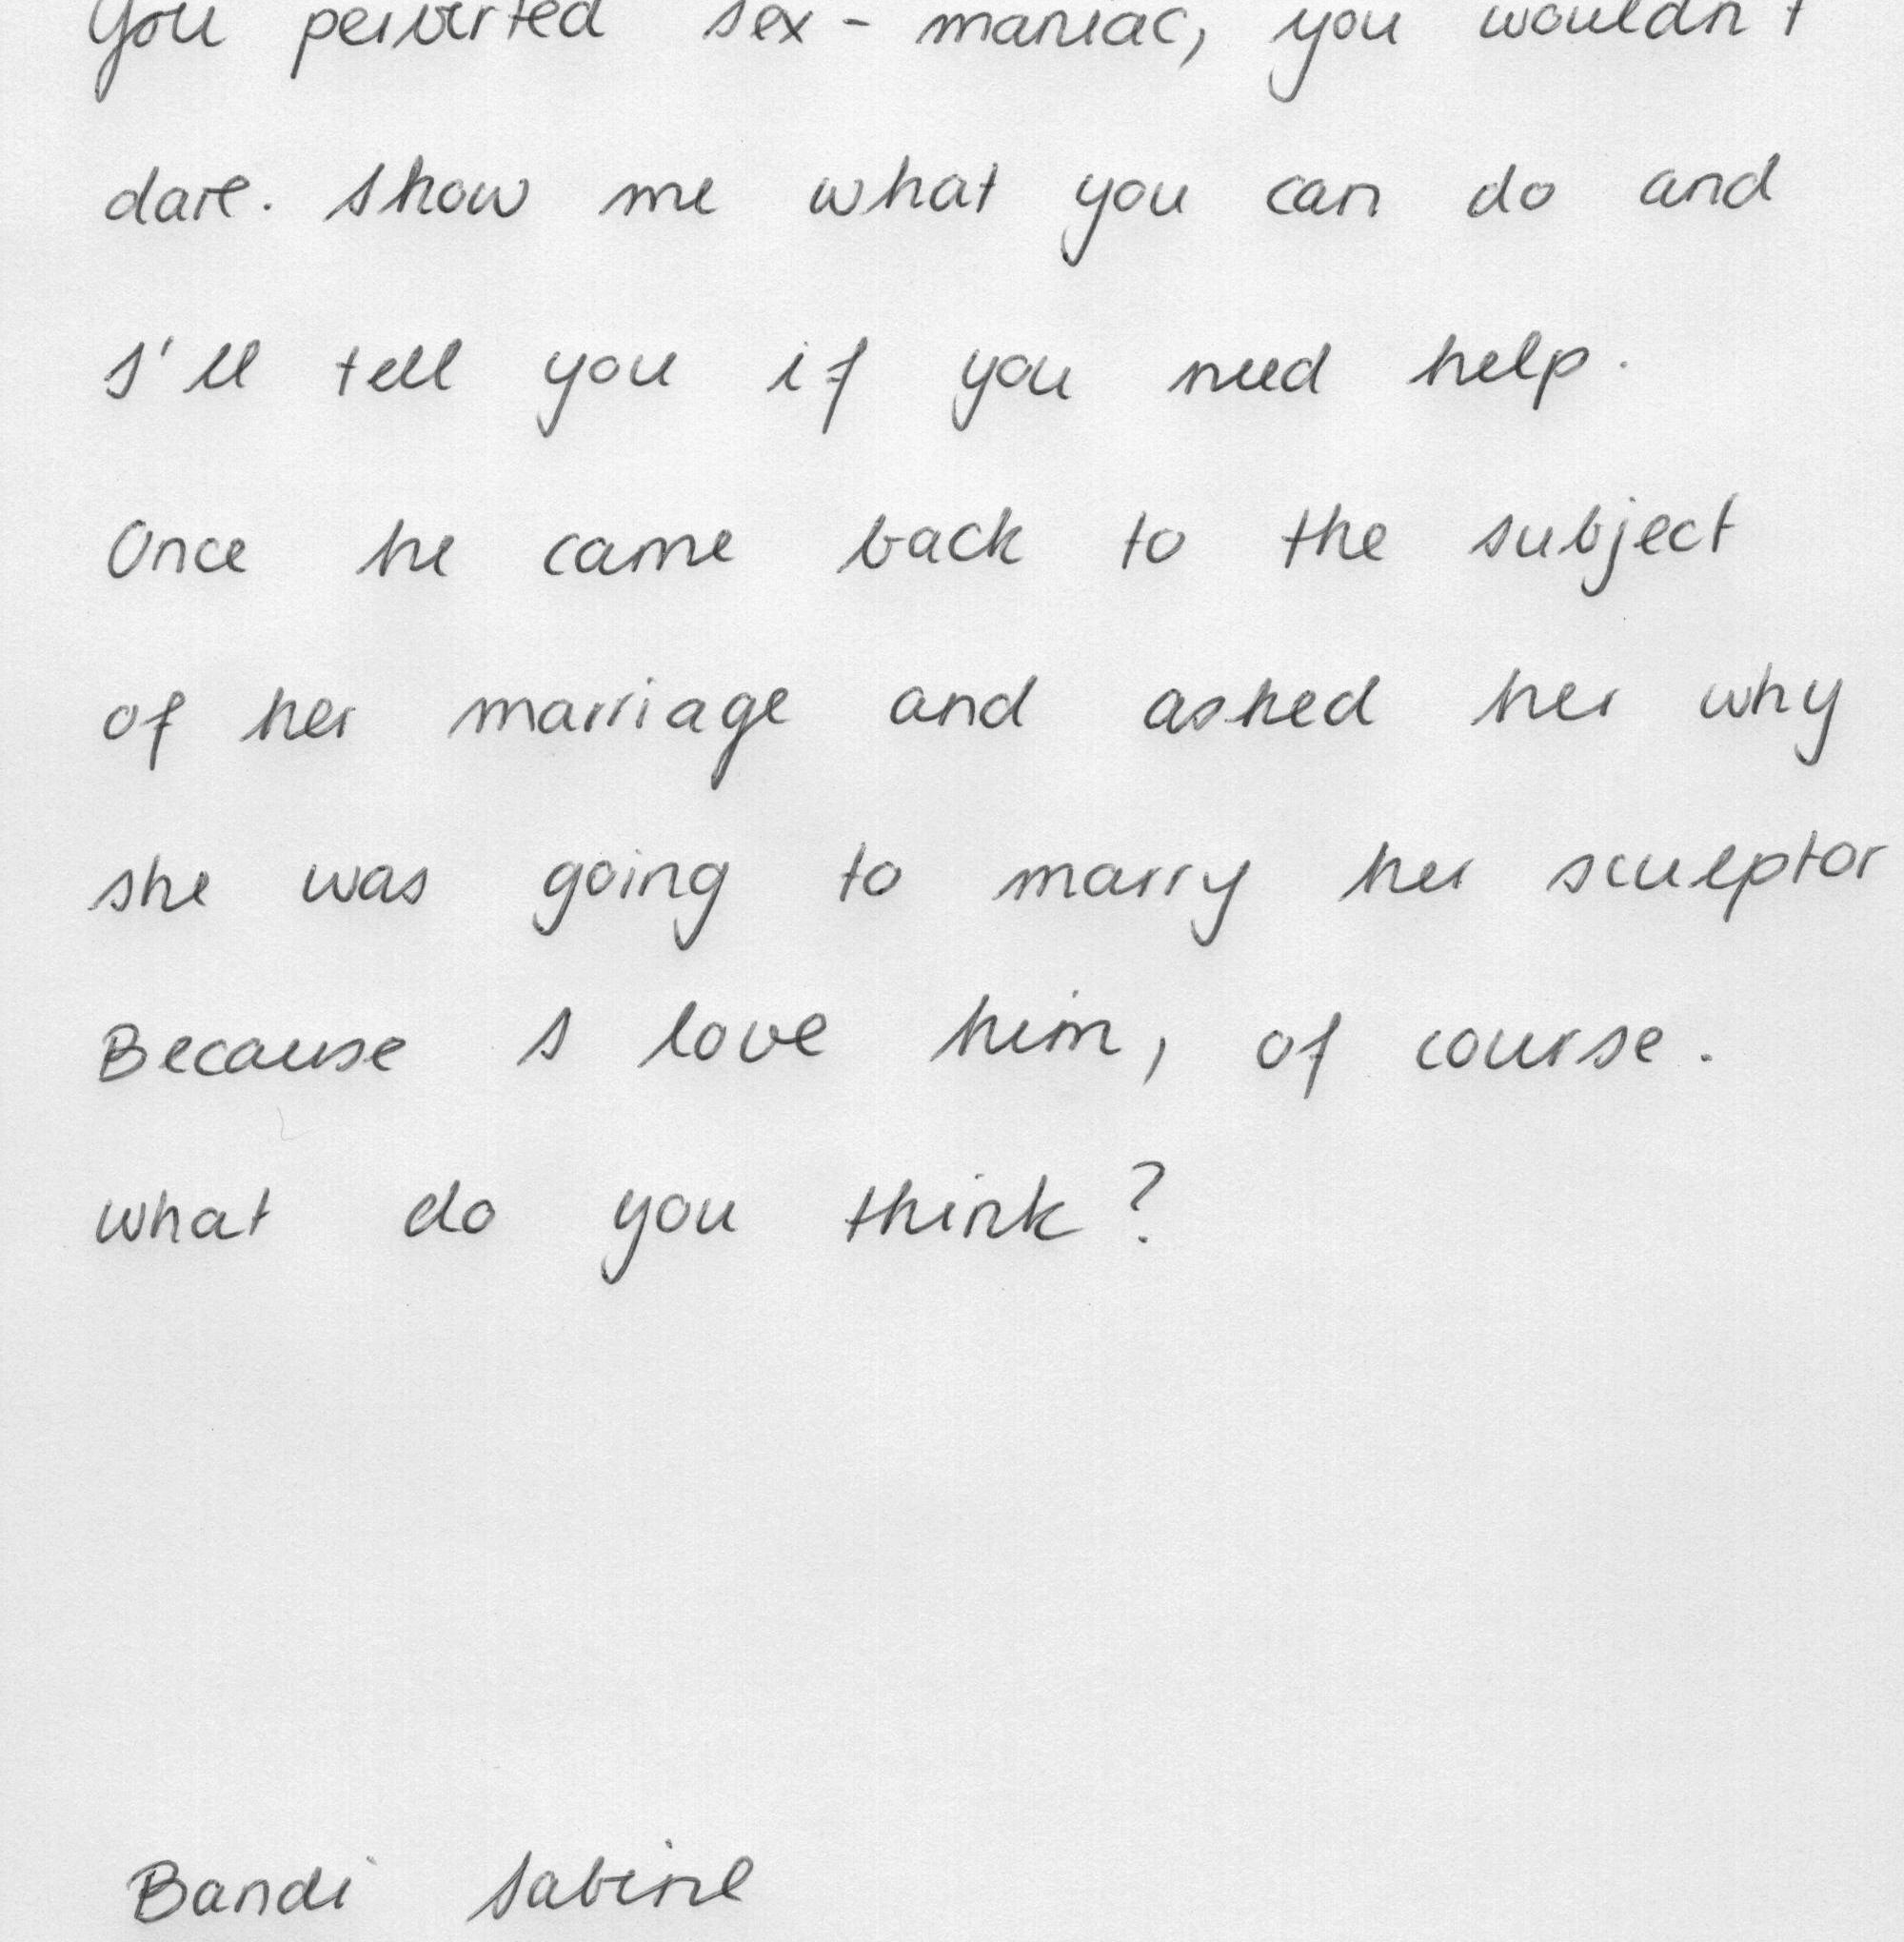 You perverted sex - maniac, you wouldn't
dare. Show me what you can do and
I'll tell you if you need help.
Once he came back to the subject
of her marriage and asked her why
she was going to marry her sculptor
Because I love him, of course.
What do you think?
Bandi Sabine